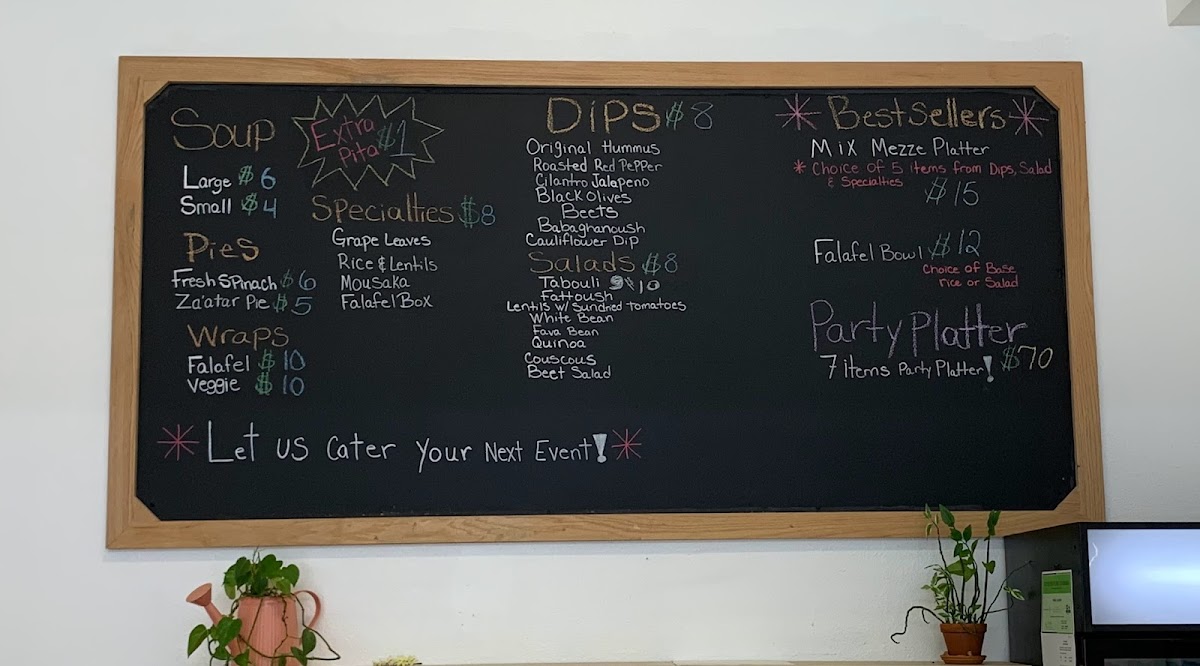 Soup
Large $6
Small $4
Pies
Fresh Spinach $6
Za'atar Pie $5
Wraps
Falafel $10
Veggie $10
Extra
Pita $1
Specialties $8
Grape Leaves
Rice & Lentils
Mousaka
Falafel Box
Dips $8
Original Hummus
Roasted Red Pepper
Cilantro Jalapeno
Black Olives
Beets
Babaghanoush
Cauliflower Dip
Salads $8
Tabouli $10
Fattoush
Lentils w/ Sundried tomatoes
White Bean
Fava Bean
Quinoa
Couscous
Beet Salad
* Best Sellers *
Mix Mezze Platter
* Choice of 5 items from Dips, Salad
& Specialties
$15
Falafel Bowl $12
Choice of Base
rice or Salad
Party Platter
7 items Party Platter! $70
* Let us Cater Your Next Event! *